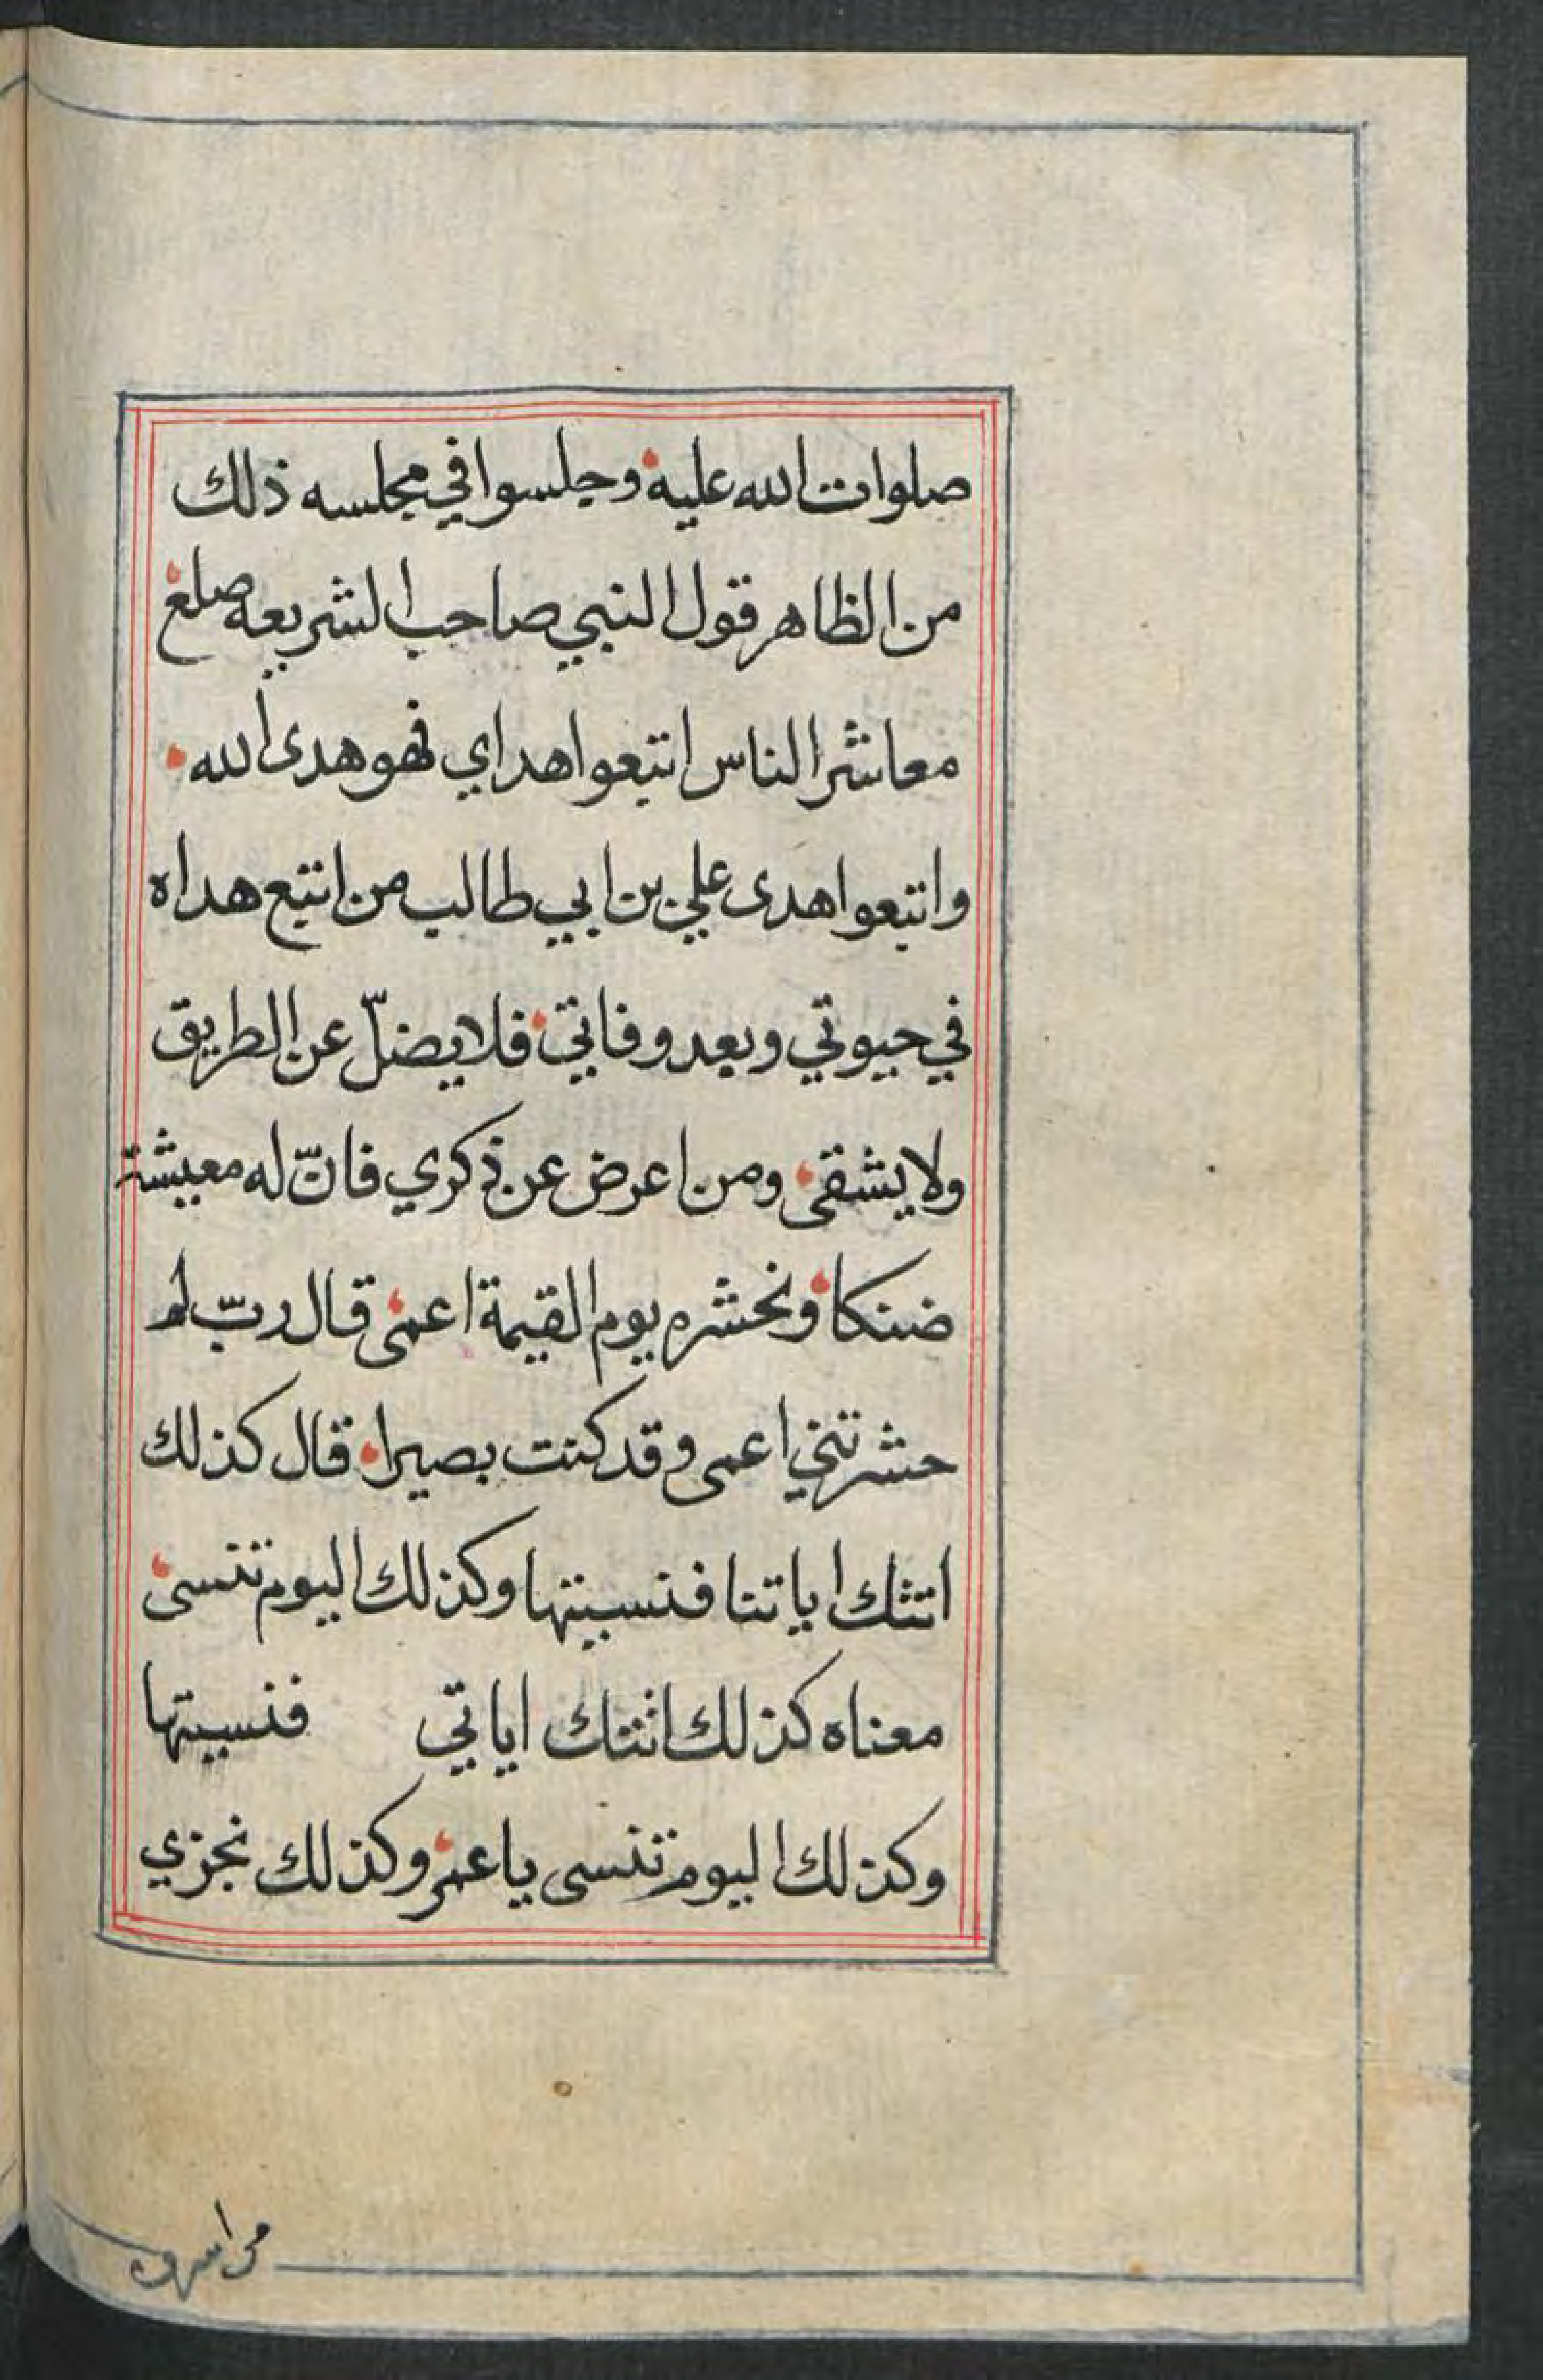 صلوات الله عليه وجلسوا في مجلسه ذلك
من الظاهر قول النبي صاحب الشريعه صلع
معاشر الناس اتبعوا هداي فهو هدى الله
واتبعوا هدى علي بن ابي طالب من اتبع هداه
في حيوتي وبعد وفاتي فلا يضلّ عن الطريق
ولا يشقى ومن اعرض عن ذكري فانّ له معيشة
ضنكا ونحشره يوم القيمة اعمى قال ربّ لم
حشرتني اعمى وقد كنت بصيرا قال كذلك
اتتك اياتنا فنسيتها وكذلك اليوم تنسى
معناه كذلك اتتك اياتي فنسيتها
وكذلك اليوم تنسى يا عمر وكذلك نجزي
من اسرف